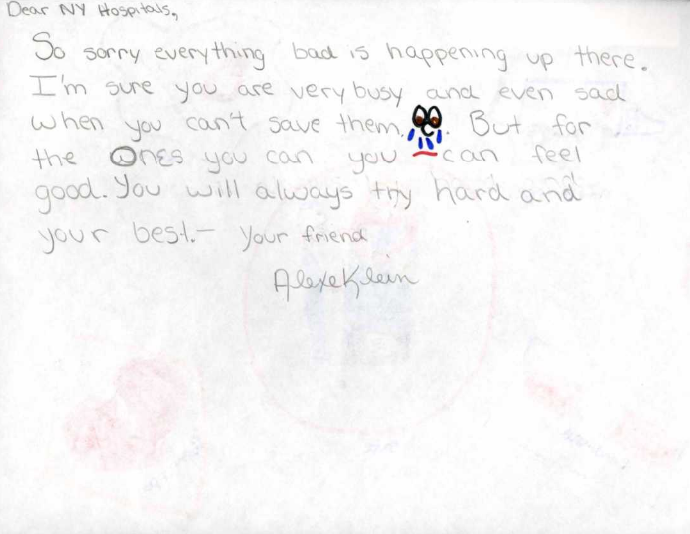 Dear NY Hospitals,
So sorry everything bad is happening up there.
I'm sure you are very busy and even sad
when you can't save them. But for
the ones you can you can feel
good. You will always try hard and
your best. - Your friend
Alexe Klein